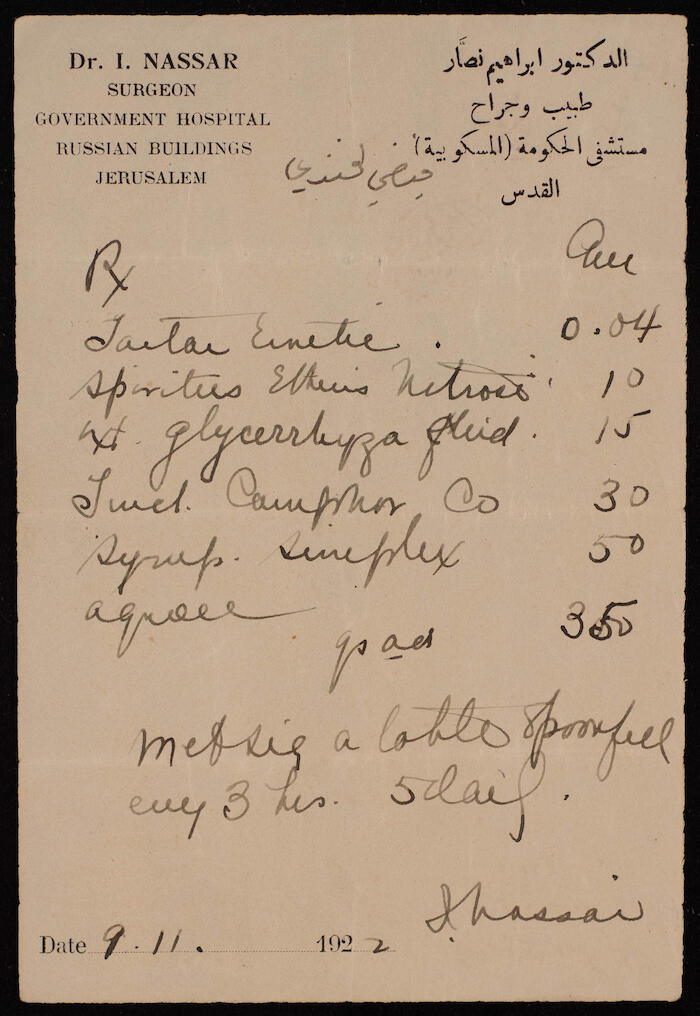 Dr. I. NASSAR
SURGEON
GOVERNMENT HOSPITAL
RUSSIAN BUILDINGS
JERUSALEM
الدكتور ابراهيم نصَّار
طبيب وجراح
مستشفى الحكومة (المسكوبية)
القدس
Rx
Tartar Emetic . 0.04
Spiritus Etheris Nitrosi 10
Ext. glycerrhyza fluid. 15
Tinct. Camphor Co 30
Syrup. Simplex 50
aquae
ad 350
a table spoonful
every 3 hrs. 5 daily.
I. Nassar
Date 9.11. 1922